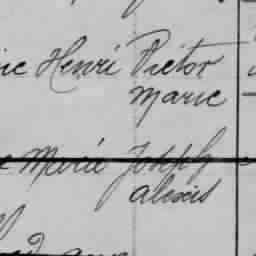 Henri Victor
Marie
Marie Joseph
alexis